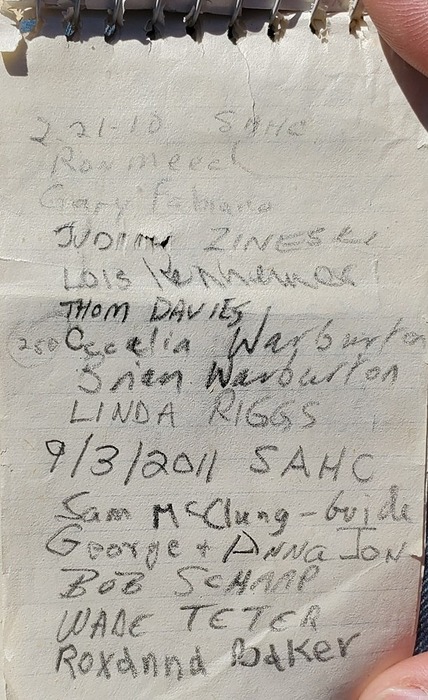 2-21-10 SAHC
Ron meech
Gary Fabiano
ZINESKI
Lois
THOM DAVIES
250 Cecelia Warburton
Brian Warburton
LINDA RIGGS
9/3/2011 SAHC
Sam McClung - Guide
George + ANNA ION
BOB SCHARP
WADE TETER
Roxanna Baker